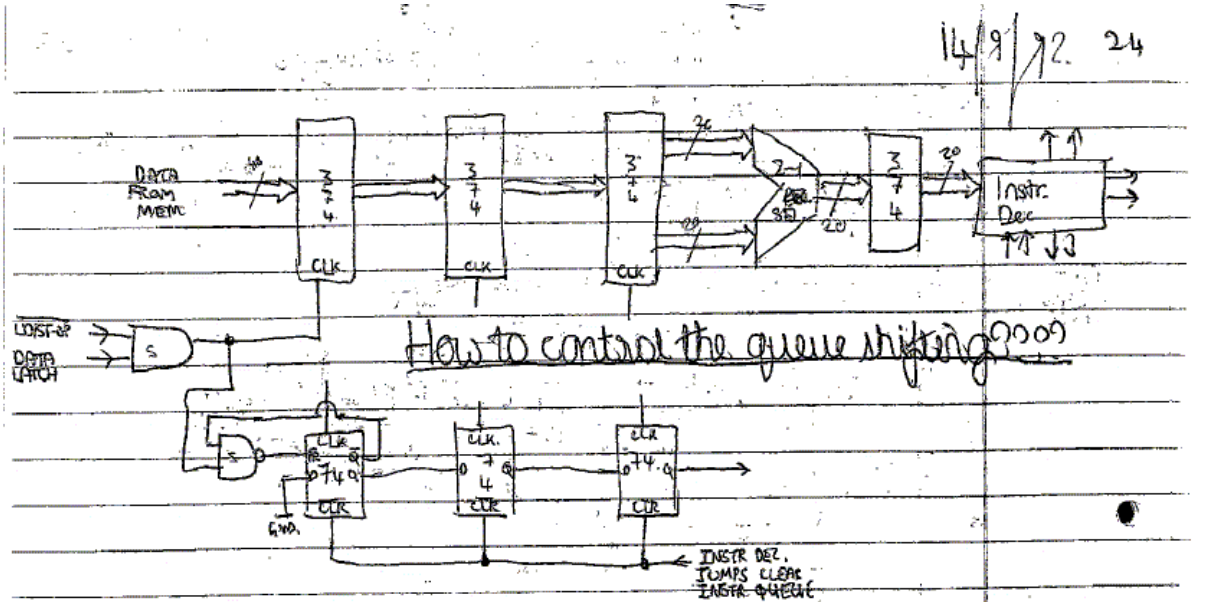 14/9/92. 24
DATA
FROM
MEM
3
7
4
CLK
3
7
4
CLK
3
7
4
CLK
20
20
2-1
20.
3
7
4
20
Instr.
Dec
DATA
LATCH
S
How to control the queue shifting????
S
CLK
Q
D 74 Q
CLR
GND.
CLK.
D 7 Q
4
CLR
CLK
D 74. Q
CLR
INSTR DEC.
JUMPS CLEAR
INSTR QUEUE